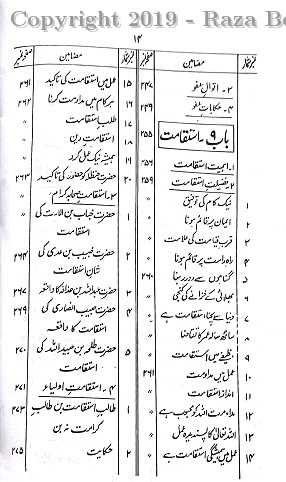 Copyright 2019 - Raza Bo
۱۴
نمبر شمار مضامین صفحہ نمبر
۳۔ اقوال صوفیہ ۲۴۷
۴۔ حکایات ۲۴۹
باب ۹۔ استقامت ۲۵۵
۱۔ اہمیت استقامت ۲۵۶
۲۔ فضیلت استقامت ۲۵۹
۱ نیک کام کی توفیق "
۲ ایمان پر قائم ہونا "
۳ قرب قیامت کی علامت "
۴ راہ راست پر قائم ہونا "
۵ گناہوں سے دور رہنا ۲۶۰
۶ بھلائی کے خزانے کی کنجی "
۷ دنیا سے بچنا استقامت ہے "
۸ "
۹ وظیفے میں استقامت "
۱۰ عمل میں مداومت ۲۶۱
۱۱ انداز استقامت "
۱۲ مداومت اللہ کو محبوب ہے "
۱۳ اللہ تعالیٰ کا پسندیدہ عمل "
۱۴ عمل میں ہمیشگی استقامت ہے "
نمبر شمار مضامین صفحہ نمبر
۱۵ عمل میں استقامت کی تاکید ۲۶۱
۱۶ ہر کام میں مداومت کرنا ۲۶۲
۱۷ طلب استقامت "
۱۸ استقامت دین "
۱۹ ہمیشہ نیک عمل کرو "
۲۰ حضرت حنظلہ کو حضور کی تاکید ۲۶۳
۳۔ استقامت صحابہ کرام "
۱ حضرت خباب بن الارت کی "
استقامت
۲ حضرت خبیب بن عدی کی ۲۶۴
شان استقامت
۳ حضرت عبداللہ بن حذافہ کا واقعہ ۲۶۷
۴ حضرت حبیب انصاری کی ۲۶۹
استقامت کا واقعہ
۵ حضرت طلحہ بن عبید اللہ کی ۲۷۰
استقامت
۴۔ استقامت اولیاء ۲۷۱
۱ طالب استقامت بن طالب ۲۷۳
کرامت نہ بن
۲ حکایت ۲۷۵